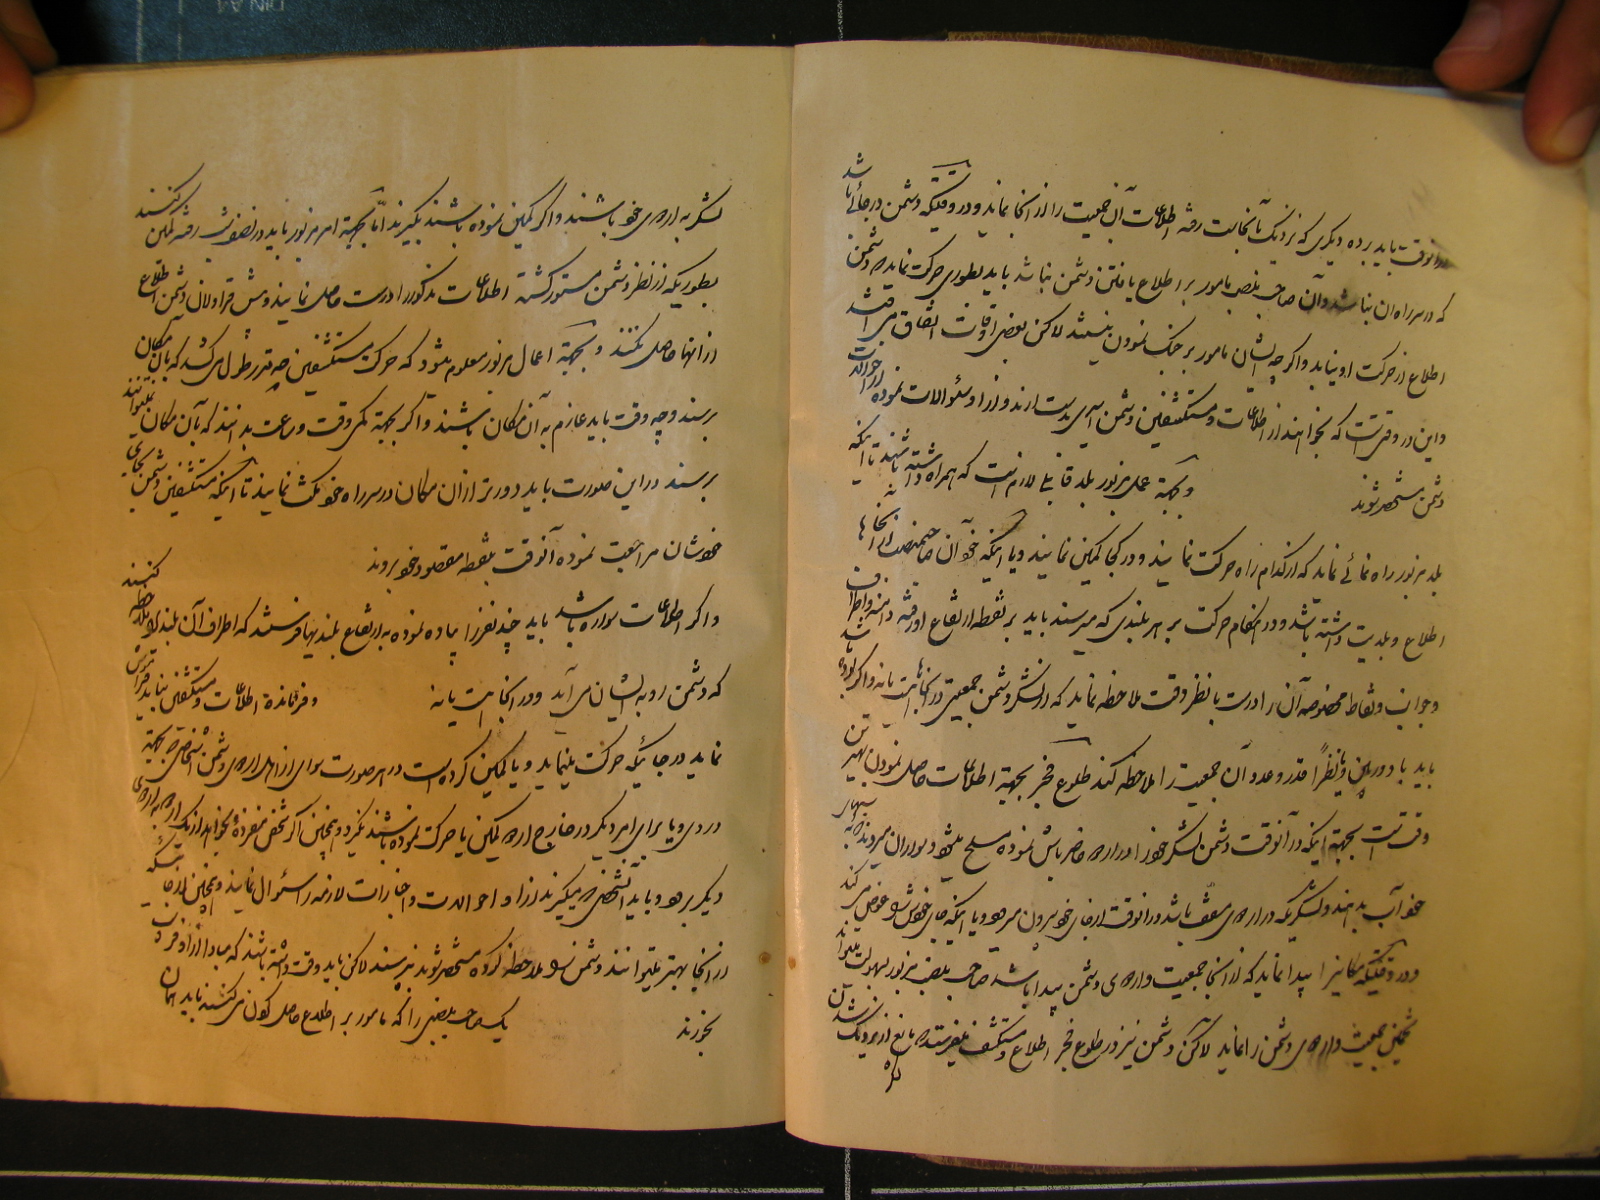 در آنوقت باید برده دیگری که نزدیک بآنجاست رفته اطلاعات آن جمعیت را از آنجا نماید و در وقتیکه دشمن در جائی باشد
که در سر راه آن نباشد و آن صاحبمنصب مامور بر اطلاع یافتن دشمن نباشد باید بطوری حرکت نماید که دشمن
اطلاع از حرکت او نیابد و اگر چه ایشان مامور بر جنگ نمودن نیستند لاکن بعضی اوقات اتفاق می افتد
و این در وقتی است که بخواهند از اطلاعات و مستکشفین دشمن اسیری بدست آرند و از او سئوالات نموده از احوالات
دشمن مستحضر شوند و بجهة عمل مزبور بلد قابلی لازم است که همراه داشته باشند تا اینکه
بلد مزبور راه نمائی نماید که از کدام راه حرکت نمایند و در کجا کمین نمایند و یا اینکه خود آن صاحبمنصب از آنجاها
اطلاع و بلدیت داشته باشد و در هنگام حرکت بر هر بلندی که میرسند باید بر نقطه ارتفاع او رفته دامنه و اطراف
و جوانب و نقاط مخصوصه آن را درست با نظر دقت ملاحظه نماید که از لشکر دشمن جمعیتی در آنجاها هست یا نه و اگر بوده باشد
باید با دوربین و یا نظراً قدر و عدد آن جمعیت را ملاحظه کند طلوع فجر بجهة اطلاعات حاصل نمودن بهترین
وقت است بجهة اینکه در آنوقت دشمن لشکر خود را در اردو حاضر باش نموده مسلح میشود و سواران میروند که اسبهای
خود آب بدهند و لشکریکه در اردوی معقب باشد در آنوقت از جای خود بیرون میرود و یا اینکه جای خودش را عوض می کند
و در وقتیکه مکانی را پیدا نماید که از آنجا جمعیت و اردوی دشمن پیدا باشد صاحبمنصب مزبور بسهولت میتواند
تخمین جمعیت و اردوی دشمن را نماید لاکن دشمن نیز در طلوع فجر اطلاع و مستکشف میفرستد که مانع از نزدیک شدن آن
لشکر به اردوی خود باشند و اگر کمین نموده باشند بگیرند اما بجهة امر مزبور باید در نصف شب رفته کمین کنند
بطوریکه از نظر دشمن مستور گشته اطلاعات مذکور را درست حاصل نمایند و پیش قراولان دشمن اطلاع
از آنها حاصل نکنند و بجهة اعمال مزبور معلوم میشود که حرکت مستکشفین چه قدر طول می کشد که بآن مکان
برسند و چه وقت باید عازم به آن مکان باشند و اگر بجهة کمی وقت و ساعت بدانند که بآن مکان نمیتوانند
برسند در این صورت باید دورتر از آن مکان در سر راه خود مکث نمایند تا اینکه مستکشفین دشمن بجای
خودشان مراجعت نموده آنوقت بنقطه مقصود خود بروند
و اگر اطلاعات سواره باشد باید چند نفر را پیاده نموده به ارتفاع بلندیها فرستند که اطراف آن بلند را ملاحظه کنند
که دشمن رو به ایشان می آید و در آنجا هست یا نه و فرمانده اطلاعات و مستکشفین نباید فراموش
نماید در جائیکه حرکت مینماید و یا کمین کرده است در هر صورت سوای از اهل اردوی دشمن اشخاصی که بجهة
دزدی و یا برای امر دیگر در خارج اردو کمین یا حرکت نموده باشند بگیرد و همچنین اگر شخص متفرقه بخواهد از یک اردو به اردوی
دیگر برود و باید آنشخصی که میگیرند از او احوالات و اخبارات لازمه را سئوال نمایند و همچنین از جائیکه
از آنجا بهتر میتوانند دشمن را ملاحظه کرده مستحضر شوند بپرسند لاکن باید وقت داشته باشند که مبادا از او فریب
بخورند یک صاحبمنصبی را که مامور بر اطلاع حاصل کردن می کنند باید همان